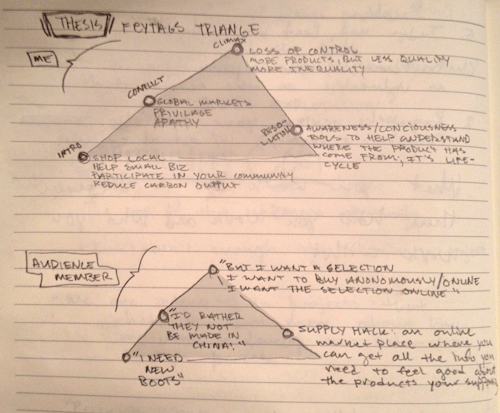 THESIS FEYTAGS TRIANGE
ME
CLIMAX
LOSS OF CONTROL
MORE PRODUCTS, BUT LESS QUALITY
MORE INEQUALITY
CONFLICT
GLOBAL MARKETS
PRIVILAGE
APATHY
RESO-
LUTION
AWARENESS/CONCIOUSNESS
TOOLS TO HELP UNDERSTAND
WHERE THE PRODUCT HAS
COME FROM, IT'S LIFE-
CYCLE
INTRO
SHOP LOCAL
HELP SMALL BIZ
PARTICIPATE IN YOUR COMMUNITY
REDUCE CARBON OUTPUT
AUDIENCE
MEMBER
"BUT I WANT A SELECTION
I WANT TO BUY ANONOMOUSLY/ONLINE
I WANT THE SELECTION ONLINE"
"I'D RATHER
THEY NOT
BE MADE IN
CHINA,"
SUPPLY HACK: an online
market place where you
can get all the info you
need to feel good about
the products your
"I NEED
NEW
BOOTS"